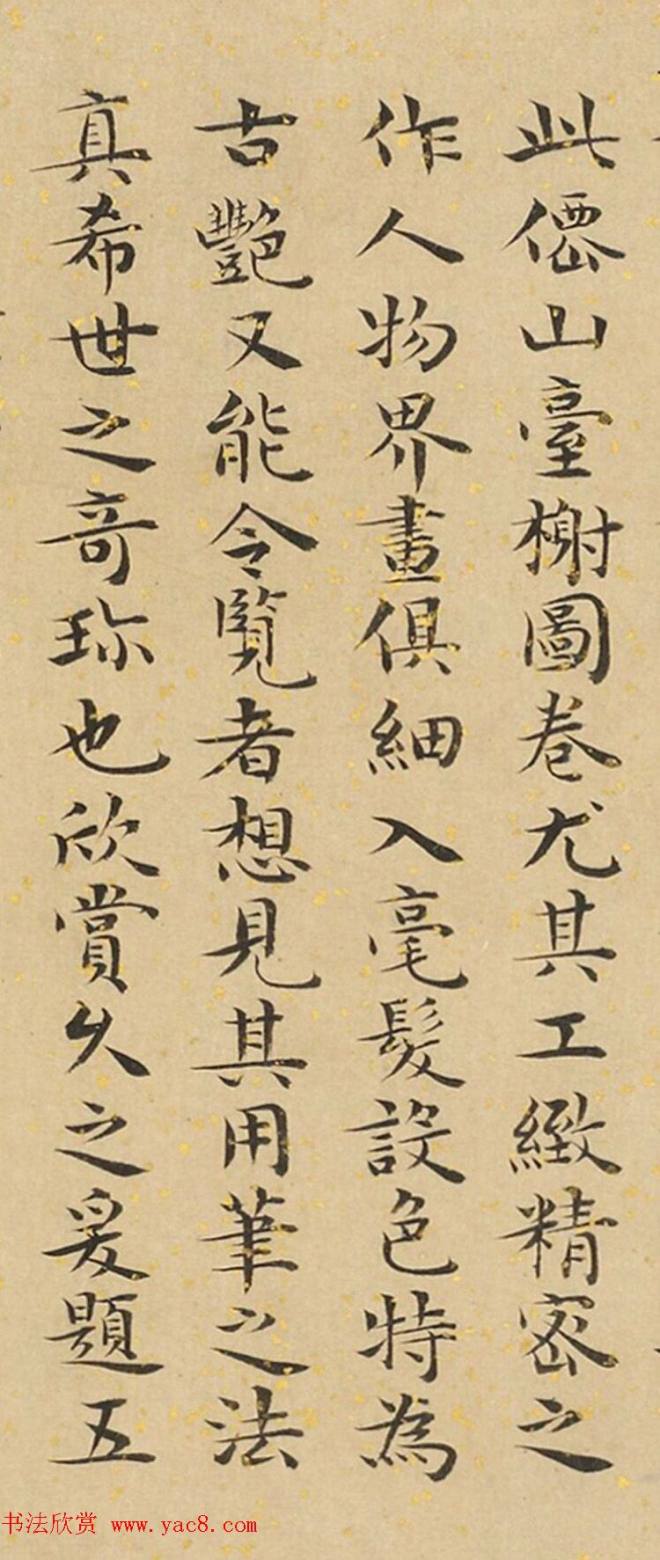 此僊山臺榭圖卷尤其工緻精密之
作人物界畫俱細入毫髮設色特為
古艷又能令覽者想見其用筆之法
真希世之奇珎也欣賞久之爰題五
书法欣赏 www.yac8.com